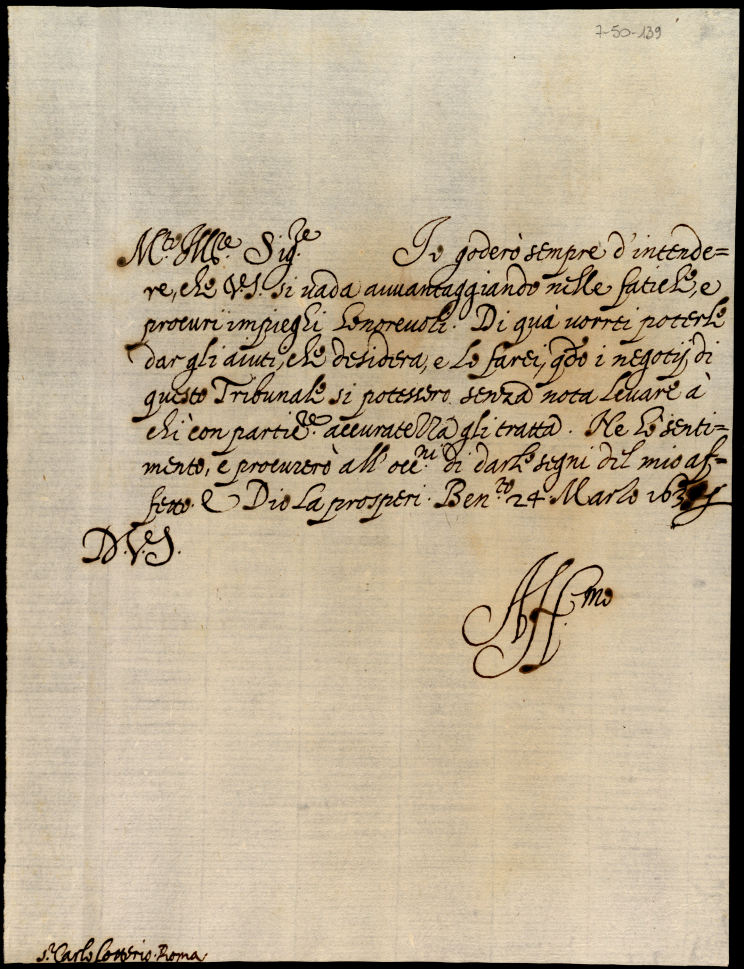 7-50-139
M.to Ill.re Sig.re Io goderò sempre d'intende=
re, che V.S. si vada avvantaggiando nelle fatiche, e
procuri impieghi honorevoli. Di quà vorrei poterle
dar gli aiuti, che desidera, e lo farei, q.do i negotij di
questo Tribunale si potessero senza nota levare à
chi con partic.re accuratezza gli tratta. Ne hò senti=
mento, e procurerò all'occ.ni di darle segni del mio af=
fetto. E Dio la prosperi. Ben.to 24 Marzo 163
D. V.S.
Aff.mo
s.r Carlo Cotterio. Roma